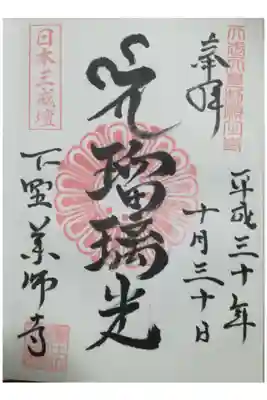 奉拝
平成三十年
十月三十日
瑠璃光
日本三戒壇
下野薬師寺